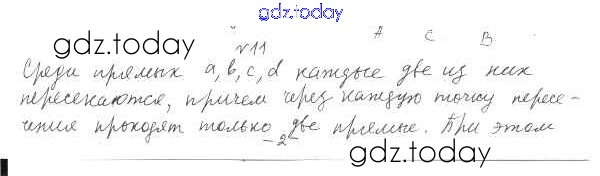 gdz.today
A C B
gdz.today
№11
Среди прямых a, b, c, d каждые две из них
пересекаются, причем через каждую точку пересе-
чения проходят только две прямые. При этом
-2-
gdz.today